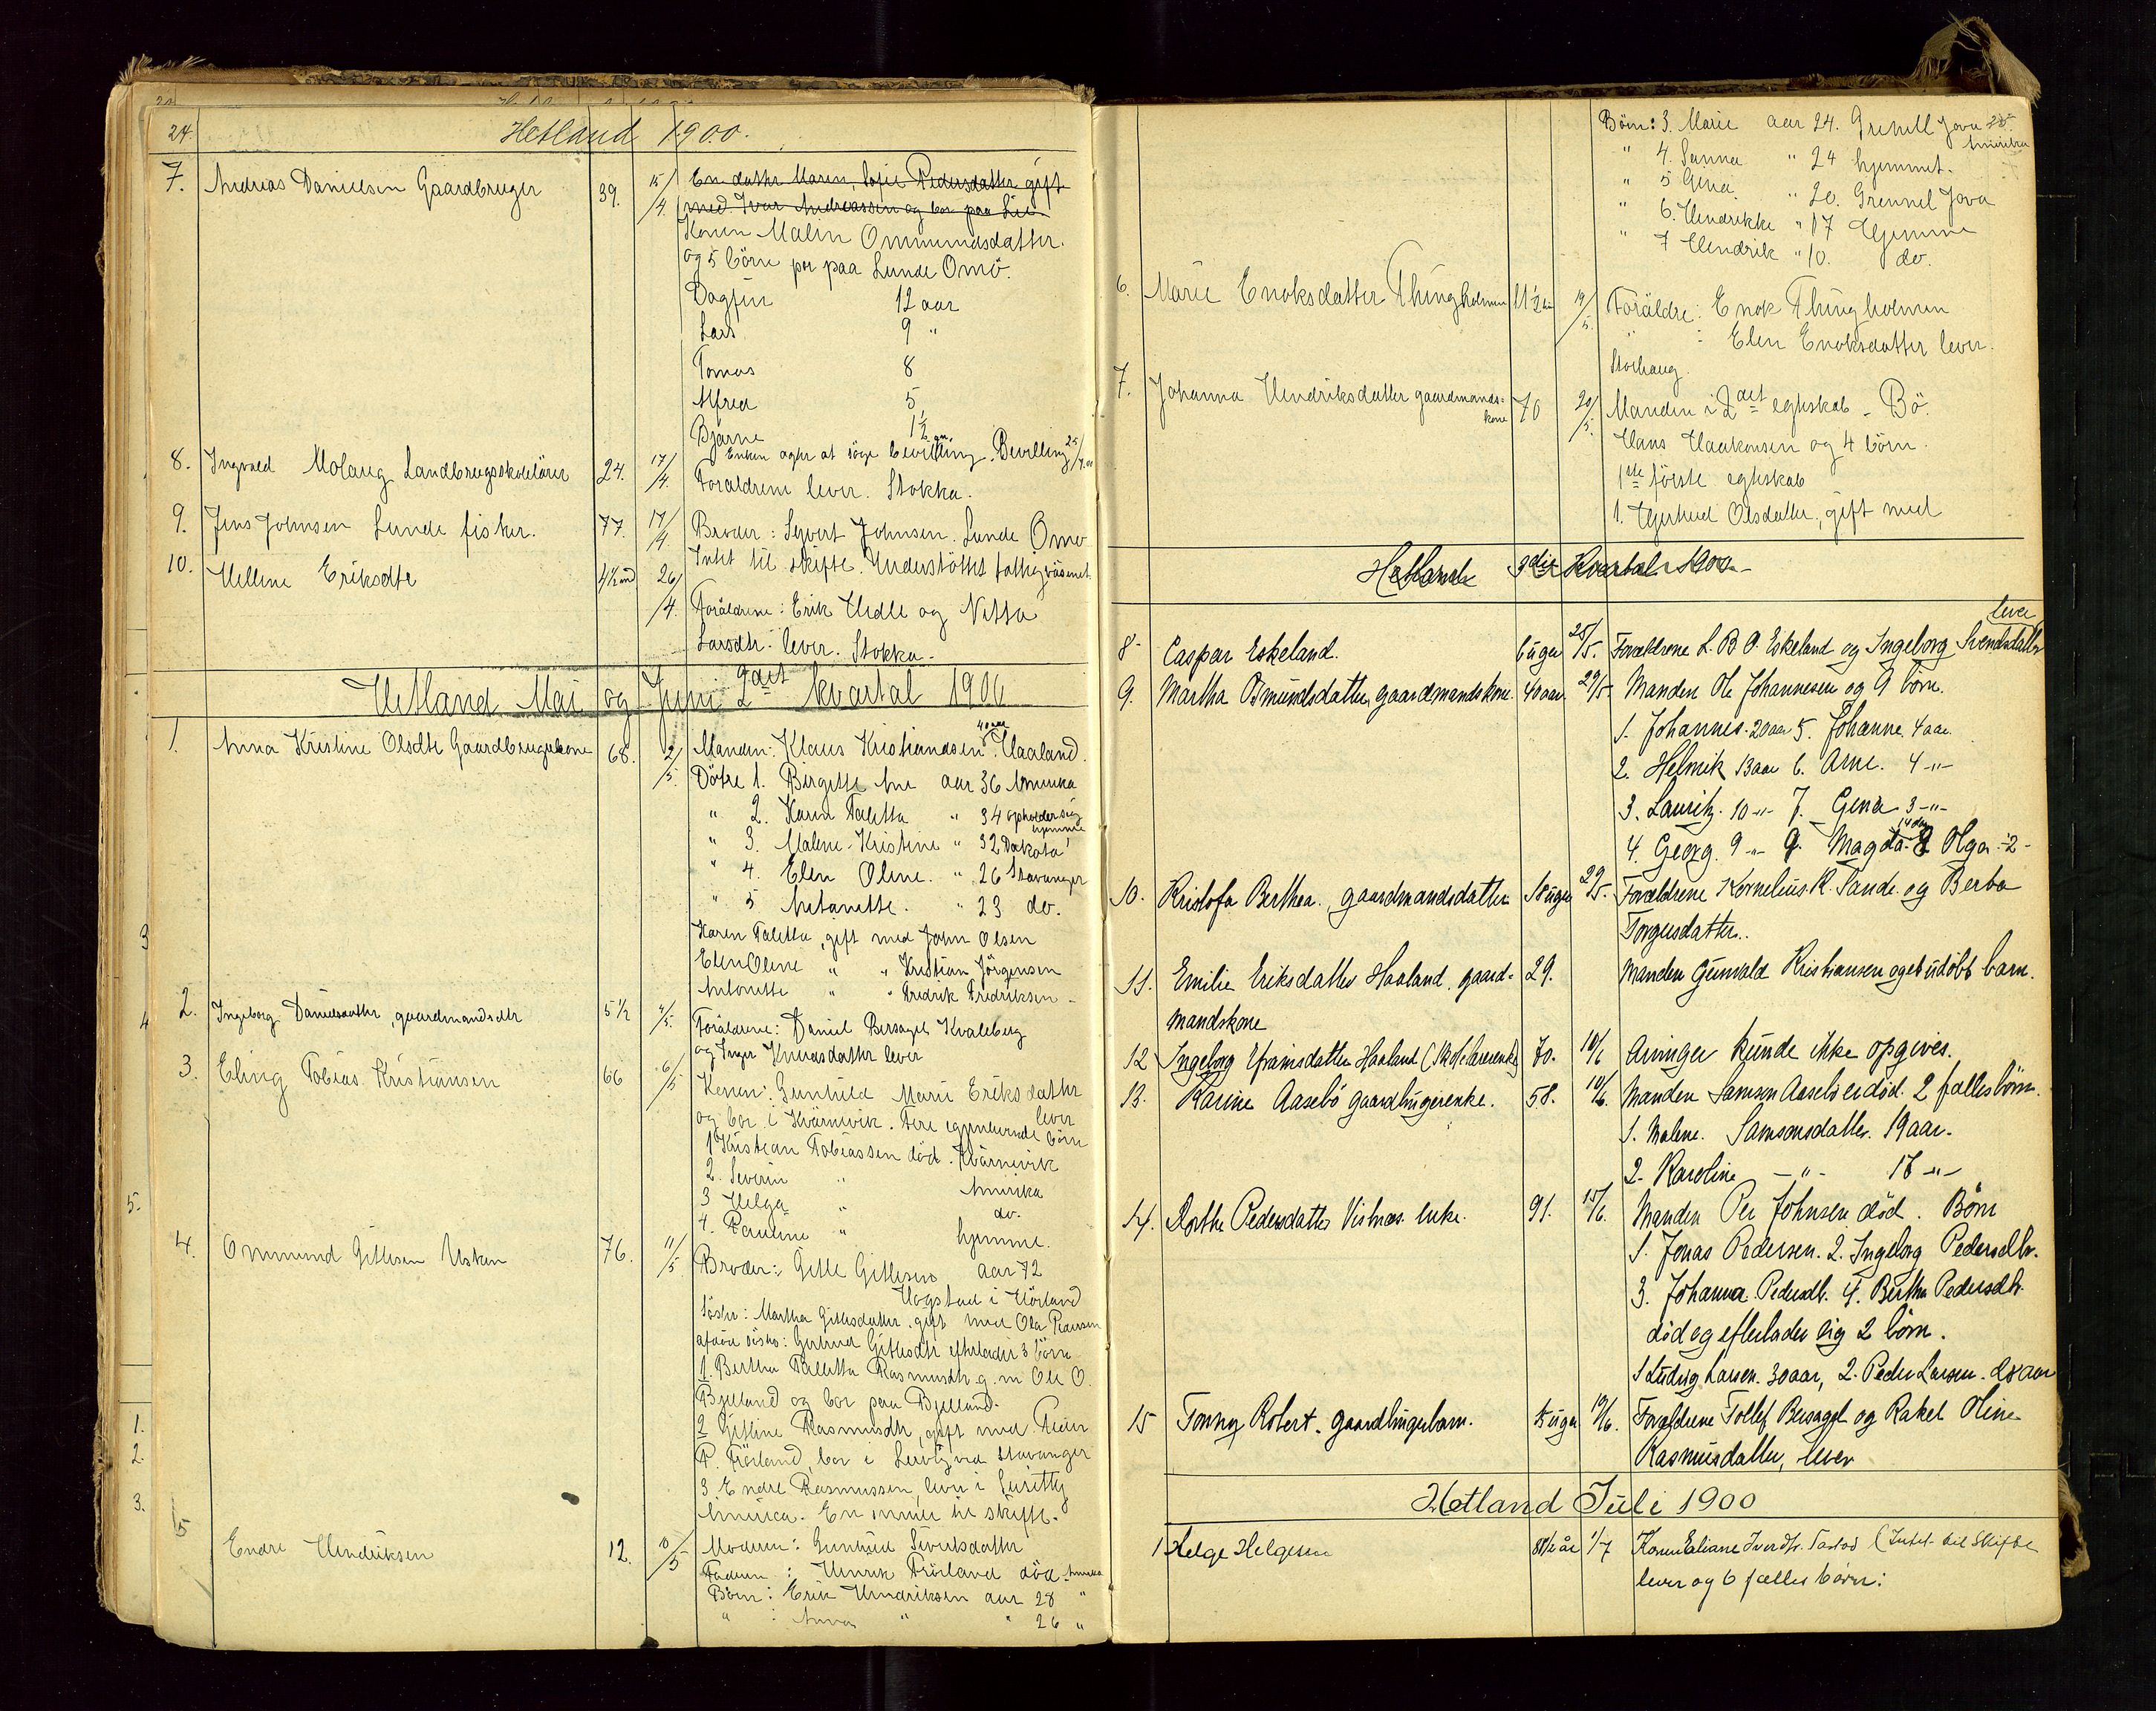 24. Hetland 1900.
7. Andreas Danielsen Gaardbruger 39. 15/4. En datter Maren, Sofie Pedersdatter gift
med Ivar Andreassen og bor paa Lie.
Konen Malen Ommundsdatter.
og 5 börn per paa Lunde Omö.
Dagfin 12 aar
Lars 9 "
Tomas 8
Alfred 5
Bjarne 1½ aar
Enken agter at söge bevilling. Bevilling 25/4.00
8. Ingvald Molaug Landbrugsskolelärer 24. 17/4. Foraldrene lever. Stokka.
9. Jens Johnsen Lunde fisker. 77. 17/4 Broder: Syvert Johnsen. Lunde Omo
Intet til skifte. Understöttet fattigväsenet.
10. Helline Eriksdtr 4½ md 26/4. Foräldrene: Erik Hedle og Netta
Larsdtr. lever. Stokka.
Hetland Mai og Juni 2det kvartal 1900
1. Anna Kristine Olsdtr Gaardbrugerkone 68. 2/5. Manden: Klaus Kristiandsen Haaland.
Dötre 1. Birgitte Ane aar 36 Amerika
" 2. Karen Taletta " 34 opholder sig
hjemme
" 3. Malene Kristine " 32 Dakota
" 4. Elen Oline. " 26 Stavanger
" 5 Antonette. " 23 do.
Karen Taletta, gift med John Olsen
Elen Oline " " Kristian Jörgensen
Antonette " " Fredrik Fredriksen
2. Ingeborg Danielsdatter, gaardmandsdtr 5½ 4/5. Foräldrene: Daniel Bersagel Kvaleberg
og Inger Knudsdatter lever
3. Eling Tobias Kristiansen 66 6/5 Konen: Gunhild Marie Eriksdatter
og bor i Kvärnevik. Fire igenlevende börn
lever
1 Kristian Tobiassen död. Kvärnevik
2. Severin " Amerika
3 Helga " do.
4. Pauline " hjemme.
4. Ommund Gitlesen Usken 76. 11/5 Broder: Gitle Gitlesen aar 72
Hogstad i Hörland
Söster: Martha Gitlesdatter, gift med Ola Pedersen
afdöd söster: Gertrud Gitlesdtr efterlader 3 börn
1. Bertha Taletta Rasmusdtr. g. m Ole O.
Bjelland og bor paa Bjelland.
2 Gitline Rasmusdtr, gift med Peder
P. Förland, bor i ved Stavanger
3 Endre Rasmussen, lever i
Amerika. En til skifte.
5 Endre Hendriksen 12. 10/5 Moderen: Gunhild Sivertsdatter
Faderen: Henrik Frörland död Amerika
Börn: Erik Hendriksen aar 28 "
" : Anna " " 26 "
Börn: 3. Marie aar 24. Grenell Jova
Amerika
" 4. Sanna " 24 hjemmet.
" 5 Gina " 20. Grennel Jova
" 6. Hendrikke " 17 Hjemme
" 7 Hendrik " 10. do.
6. Marie Enoksdatter Thingholmen 11½ 19/5. Foräldre: Enok Thingholmen
" : Elen Enoksdatter lever.
Storhaug.
7. Johanna Hendriksdatter gaardmands-
kone 70 20/5. Manden i 2det egteskab - Bö.
Hans Haakonsen og 4 börn.
1ste förste egteskab
1. Gjertrud Olsdatter, gift med
Hetland 3die Kvartal 1900
8. Caspar Eskeland. 6 uger 25/5. Forældrene L. B. O. Eskeland og Ingeborg Svendsdatter
lever
9. Martha Osmundsdatter gaardmandskone. 40 aar 29/5 Manden Ole Johannesen og 9 börn.
1. Johannes. 20 aar 5. Johanne. 4 aar.
2. Helmik 13 aar 6. Arne. 4 -"-
3. Lauritz. 10 -"- 7. Gena 3 -"-
4. Georg. 9 -"- 9. Magda 14 dg 8 Olga -2-
10. Kristofa Berthea., gaardmandsdatter 18 uger 29/5. Forældrene Kornelius K. Sande. og Berta
Torgersdatter..
11. Emilie Eriksdatter Haaland. gaard-
mandskone 29. Manden Gunvald Kristiansen og et udöbt barn.
12 Ingeborg Efraimsdatter Haaland (Skolelärerenke) 70. 10/6 Arvinger kunde ikke opgives.
13. Karine Aasebö gaardbrugerenke. 58. 10/6. Manden Samson Aasebö er död. 2 fælles börn.
1. Malene. Samsonsdatter. 19 aar.
2. Karoline -"- 18 -"-
14. Dorthe Pedersdatter Vistnæs. enke. 91. 15/6. Manden Per Johnsen död. Börn
1. Jonas Pedersen. 2. Ingeborg Pedersdtr.
3. Johanna Pedersdtr. 4. Bertha Pedersdtr.
död og efterlader sig 2 börn.
1 Ludvig Larsen. 30 aar, 2. Peder Larsen. 28 aar
15 Tonny Robert. gaardbrugerbarn. 5 uger 19/6. Forældrene Tollef Bersagel og Rakel Oline
Rasmusdatter, lever
Hetland Juli 1900
1 Helge Helgesen 81½ år 1/7 Konen Eliane Iversdtr. Tastad (Intet til Skifte
lever og 6 fælles börn: